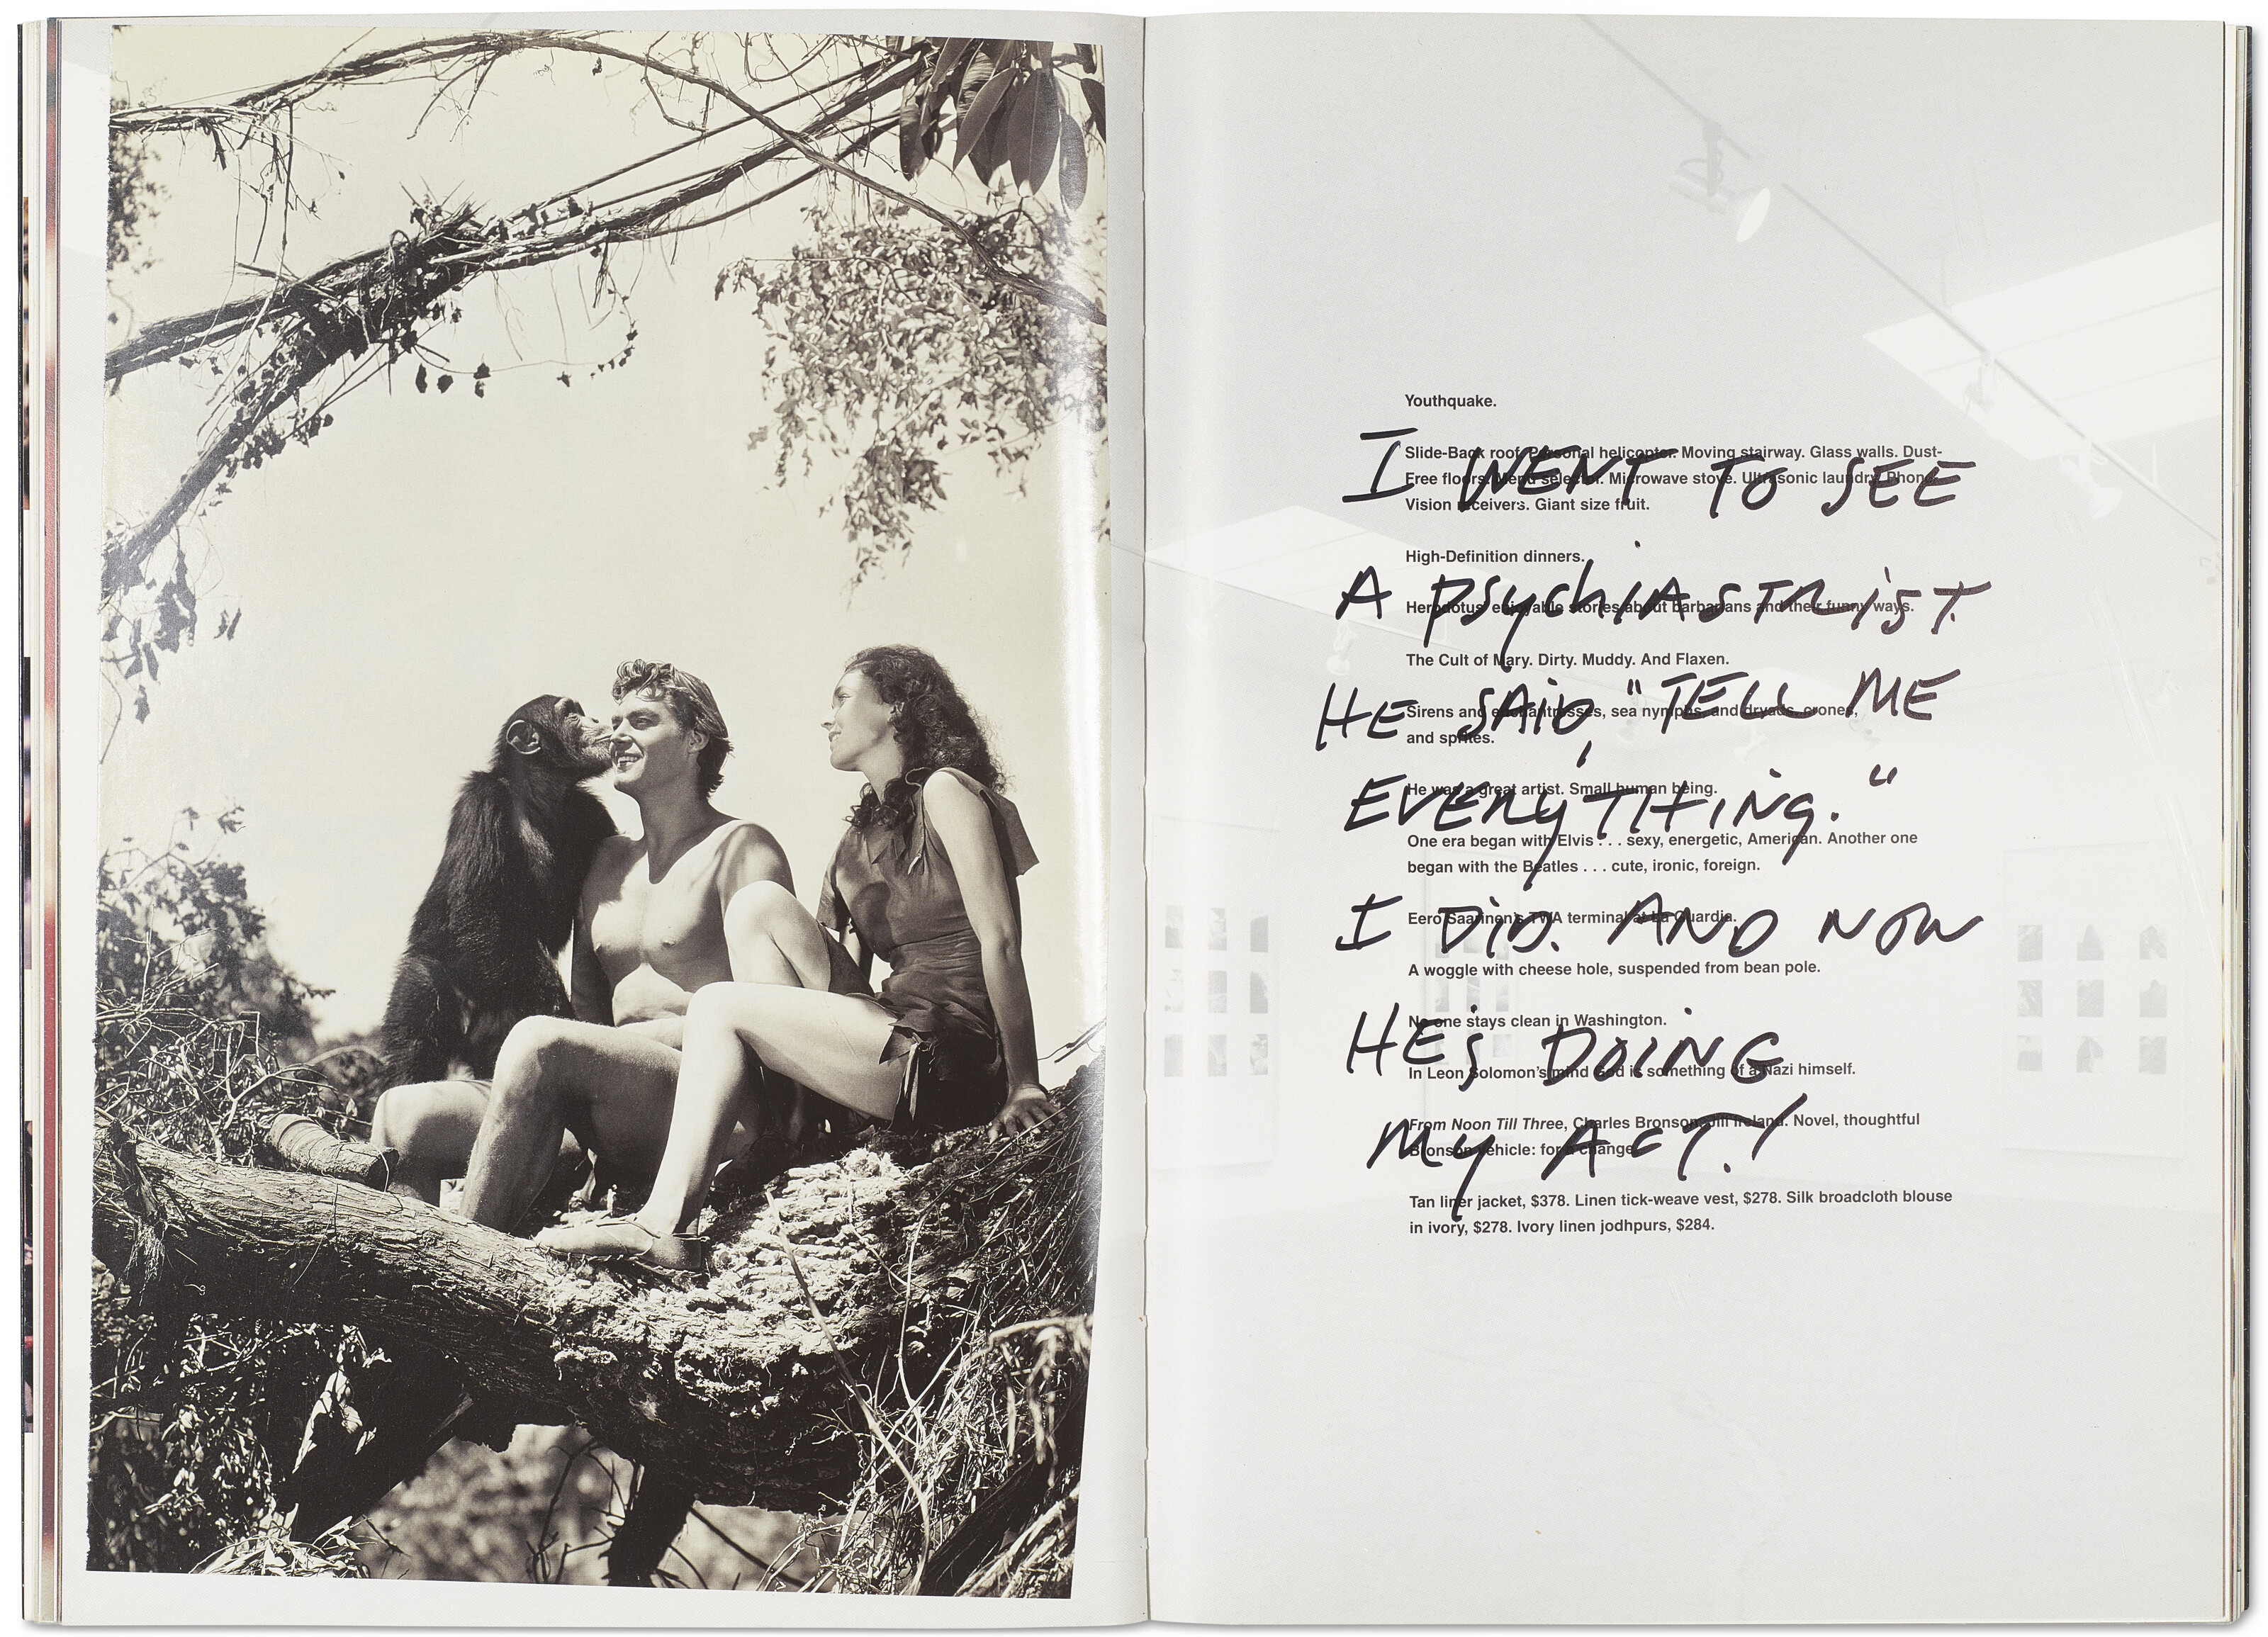 Youthquake.
Slide-Back roof. Personal helicopter. Moving stairway. Glass walls. Dust-
Free floors. Menu selector. Microwave stove. Ultrasonic laundry. Phone-
Vision receivers. Giant size fruit.
High-Definition dinners.
Herodotus' enjoyable stories about barbarians and their funny ways.
The Cult of Mary. Dirty. Muddy. And Flaxen.
Sirens and enchantresses, sea nymphs, and dryads, crones,
and sprites.
He was a great artist. Small human being.
One era began with Elvis . . . sexy, energetic, American. Another one
began with the Beatles . . . cute, ironic, foreign.
Eero Saarinen's TWA terminal at La Guardia.
A woggle with cheese hole, suspended from bean pole.
No one stays clean in Washington.
In Leon Solomon's mind God is something of a Nazi himself.
From Noon Till Three, Charles Bronson, Jill Ireland. Novel, thoughtful
Bronson vehicle: for a change.
Tan liner jacket, $378. Linen tick-weave vest, $278. Silk broadcloth blouse
in ivory, $278. Ivory linen jodhpurs, $284.
I WENT TO SEE
A PSYCHIASTRIST.
HE SAID, "TELL ME
EVERYTHING."
I DID. AND NOW
HE'S DOING
MY ACT.!